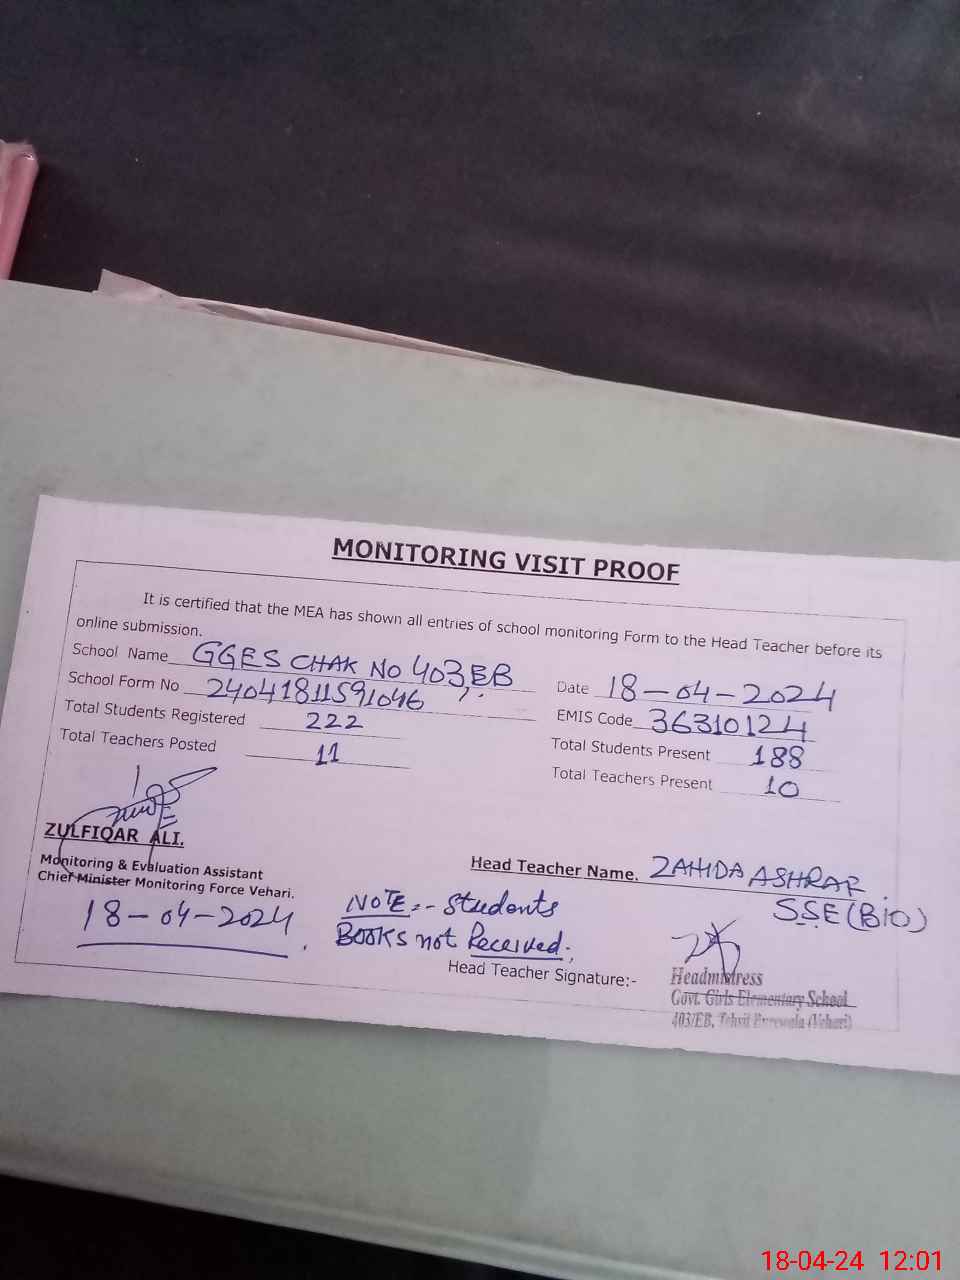 MONITORING VISIT PROOF
It is certified that the MEA has shown all entries of school monitoring Form to the Head Teacher before its
online submission.
School Name GGES CHAK NO 403,EB
School Form No 24041811591046
Total Students Registered 222
Total Teachers Posted 11
Date 18-04-2024
EMIS Code 36310124
Total Students Present 188
Total Teachers Present 10
ZULFIQAR ALI.
Monitoring & Evaluation Assistant
Chief Minister Monitoring Force Vehari.
18-04-2024
NOTE:- Students
BOOKS not Received.
Head Teacher Name. ZAHIDA ASHRAF
SSE(BIO)
Head Teacher Signature:-
Headmistress
Govt. Girls Elementary School
403/EB, Tehsil Burewala (Vehari)
18-04-24 12:01